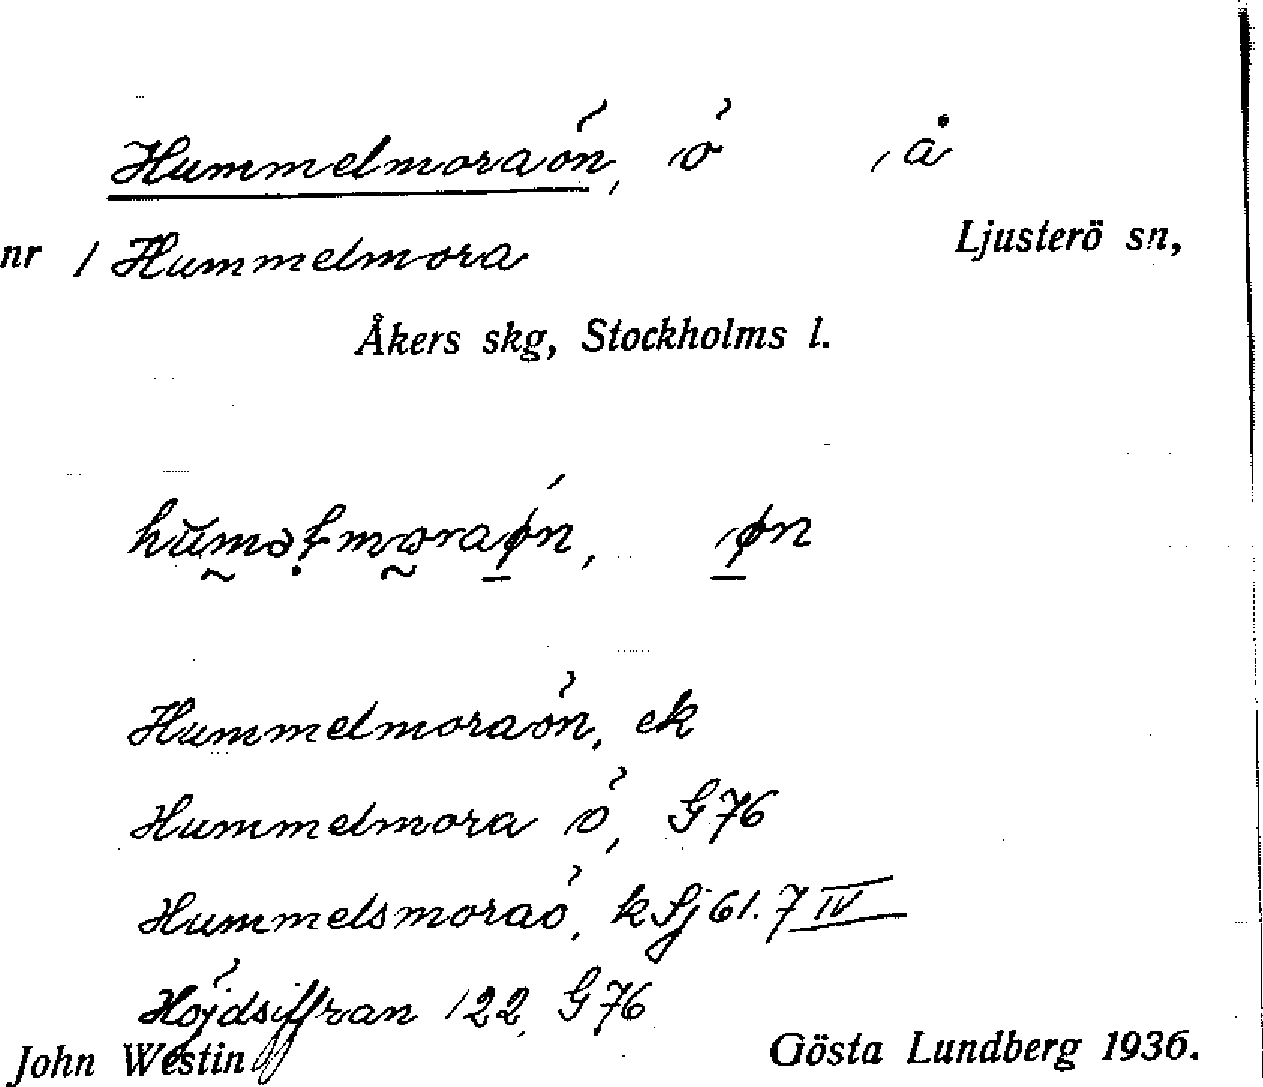 Hummelmoraön, ö , å
nr 1 Hummelmora Ljusterö sn,
Åkers skg, Stockholms l.
Hummelmoraön, ek
Hummelmora ö, G 76
Hummelsmoraö, k Sj 61. 7 IV
Höjdsiffran 122, G 76
John Westin Gösta Lundberg 1936.